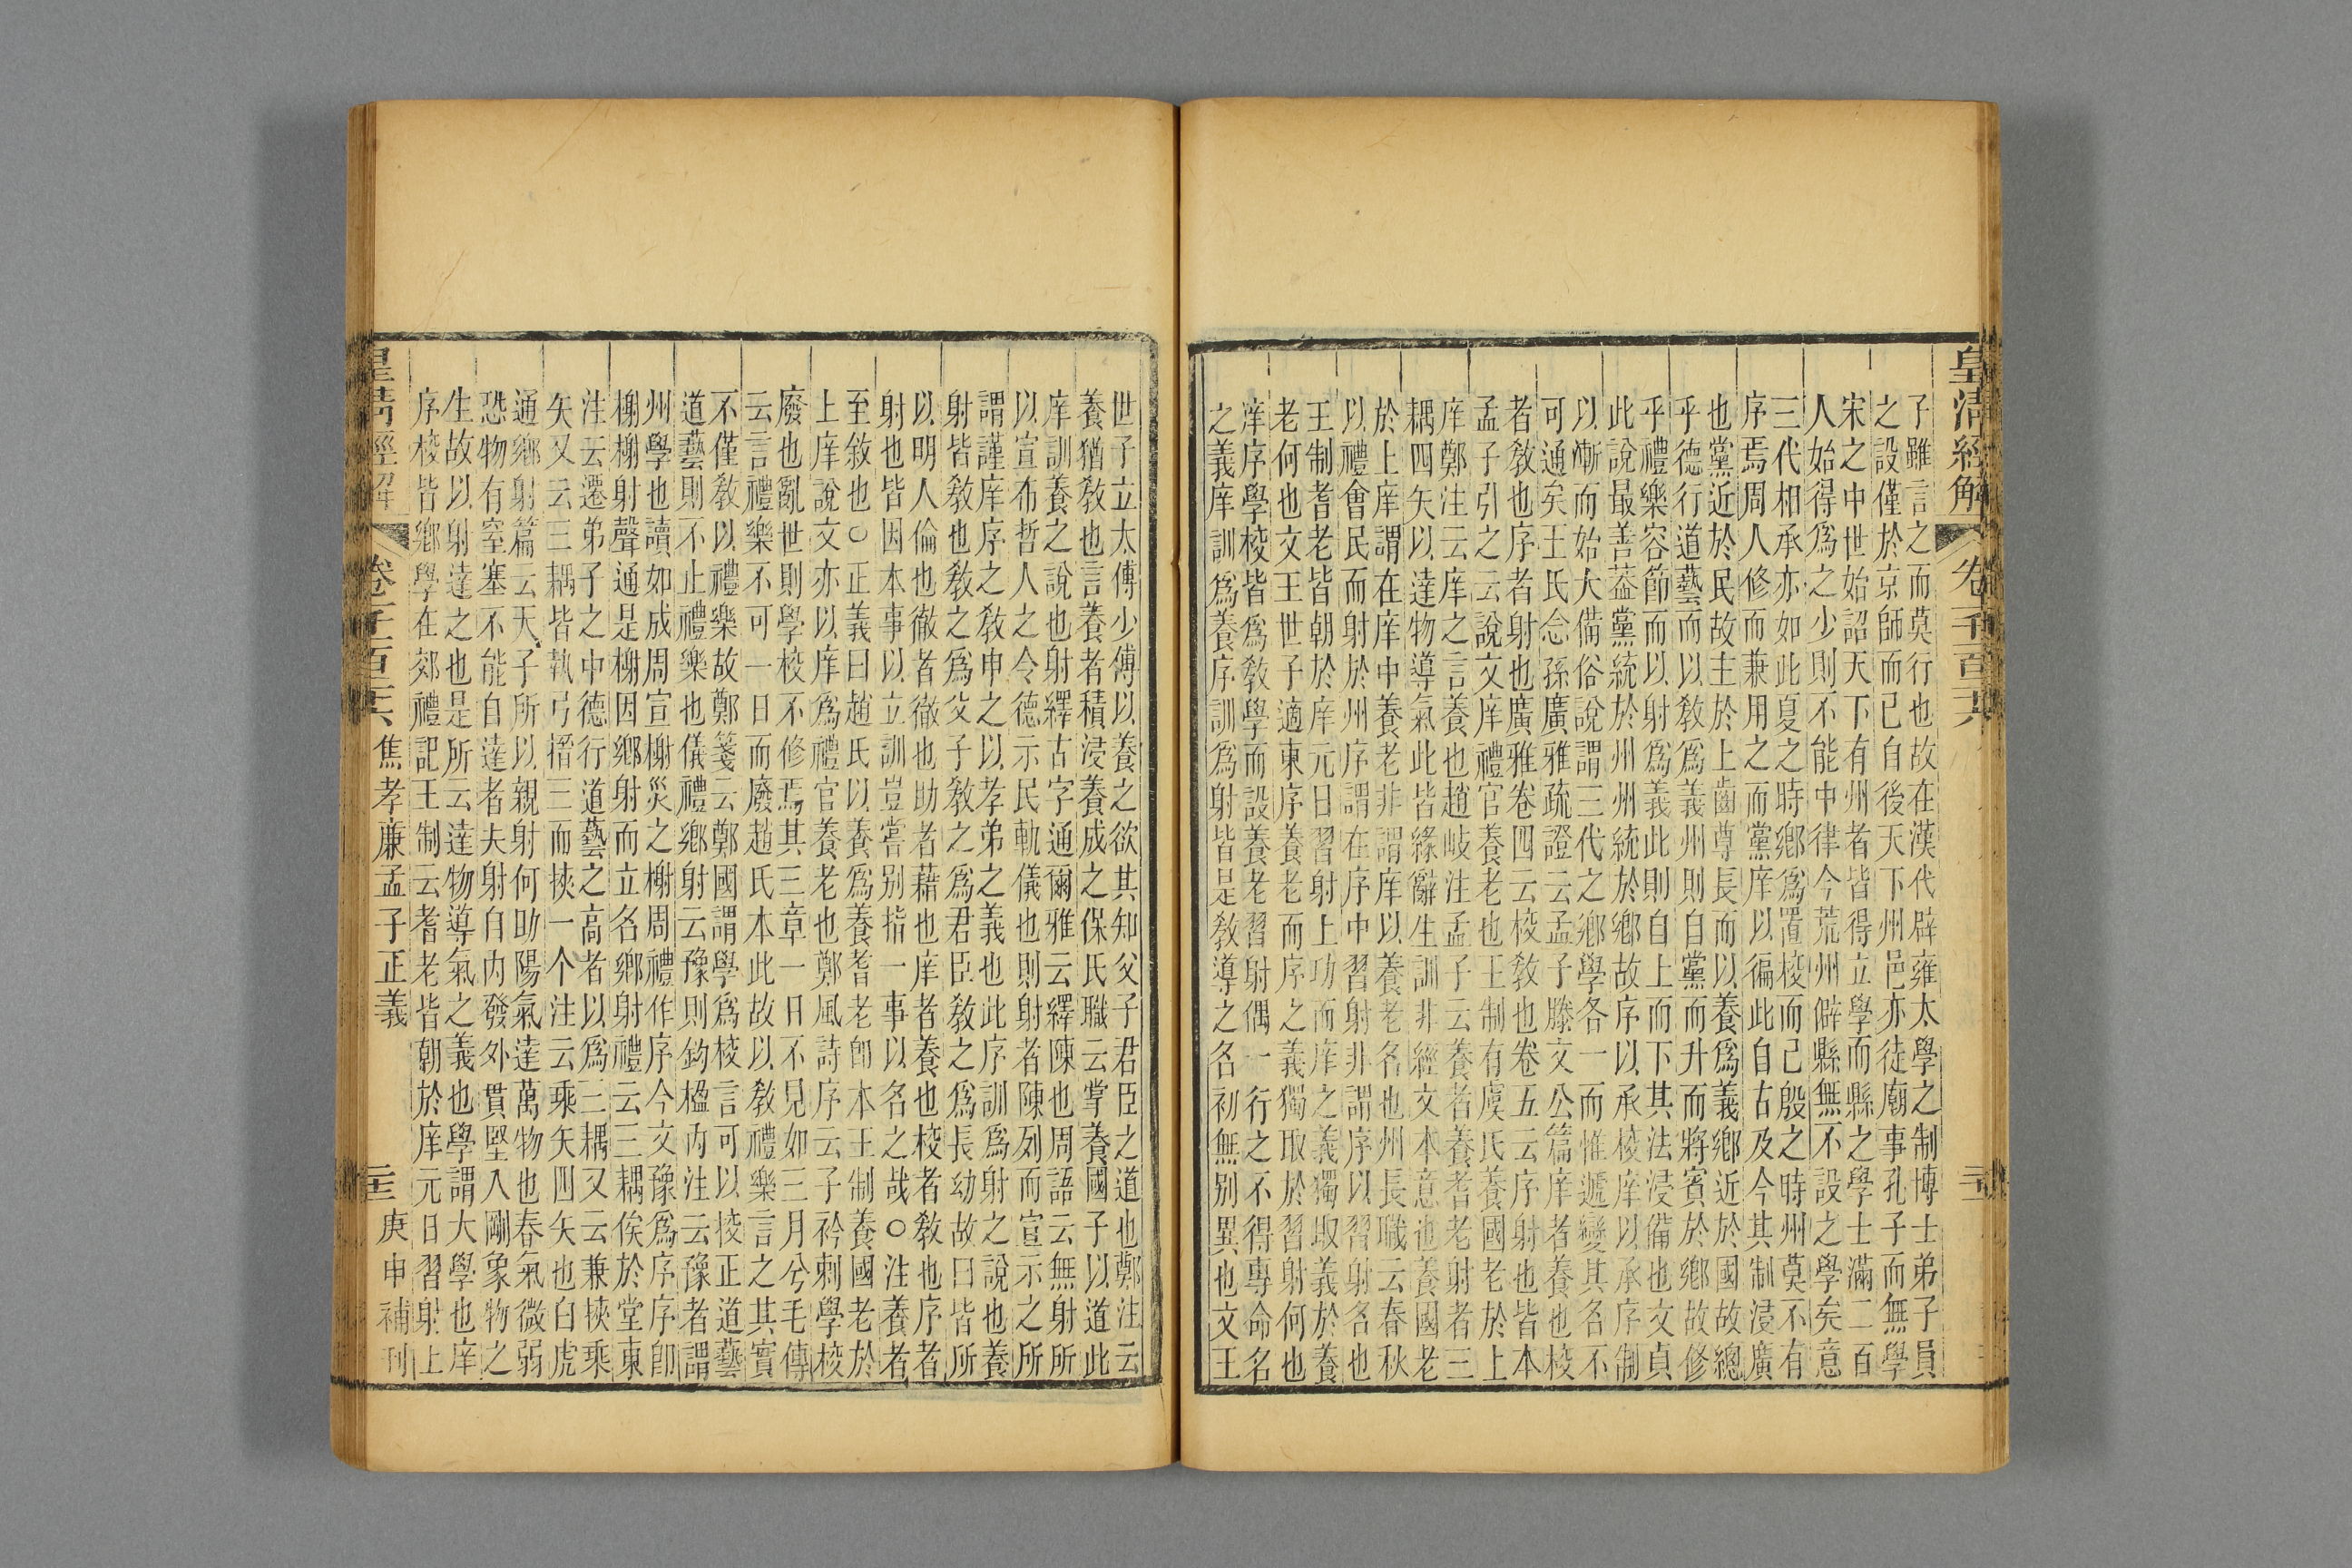 皇清經解
卷一千一百二十六
子雖言之而莫行也故在漢代辟雍太學之制博士弟子員
之設僅於京師而已自後天下州邑亦徒廟事孔子而無學
宋之中世始詔天下有州者皆得立學而縣之學士滿二百
人始得爲之少則不能中律今荒州僻縣無不設之學矣意
三代相承亦如此夏之時鄉爲置校而已殷之時州莫不有
序焉周人修而兼用之而黨庠以徧此自古及今其制浸廣
也黨近於民故主於上齒尊長而以養爲義鄉近於國故總
乎德行道藝而以敎爲義州則自黨而升而將賓於鄉故修
乎禮樂容節而以射爲義此則自上而下其法浸備也文貞
此說最善葢黨統於州州統於鄉故序以承校庠以承序制
以漸而始大備俗說謂三代之鄉學各一而惟遞變其名不
可通矣王氏念孫廣雅疏證云孟子滕文公篇庠者養也校
者敎也序者射也廣雅卷四云校敎也卷五云序射也皆本
孟子引之云說文庠禮官養老也王制有虞氏養國老於上
庠鄭注云庠之言養也趙岐注孟子云養者養耆老射者三
耦四矢以達物導氣此皆緣辭生訓非經文本意也養國老
於上庠謂在庠中養老非謂庠以養老名也州長職云春秋
以禮會民而射於州序謂在序中習射非謂序以習射名也
王制耆老皆朝於庠元日習射上功而庠之義獨取義於養
老何也文王世子適東序養老而序之義獨取於習射何也
庠序學校皆爲敎學而設養老習射偶一行之不得專命名
之義庠訓爲養序訓爲射皆是敎導之名初無别異也文王
世子立太傅少傅以養之欲其知父子君臣之道也鄭注云
養猶敎也言養者積浸養成之保氏職云掌養國子以道此
庠訓養之說也射繹古字通爾雅云繹陳也周語云無射所
以宣布哲人之令德示民軌儀也則射者陳列而宣示之所
謂謹庠序之敎申之以孝弟之義也此序訓爲射之說也養
射皆敎也敎之爲父子敎之爲君臣敎之爲長幼故曰皆所
以明人倫也徹者徹也助者藉也庠者養也校者敎也序者
射也皆因本事以立訓豈嘗别指一事以名之哉○注養者
至敘也○正義曰趙氏以養爲養耆老卽本王制養國老於
上庠說文亦以庠爲禮官養老也鄭風詩序云子衿刺學校
廢也亂世則學校不修焉其三章一日不見如三月兮毛傳
云言禮樂不可一日而廢趙氏本此故以敎禮樂言之其實
不僅敎以禮樂故鄭箋云鄭國謂學爲校言可以校正道藝
道藝則不止禮樂也儀禮鄉射云豫則鉤楹內注云豫者謂
州學也讀如成周宣榭災之榭周禮作序今文豫爲序序卽
榭榭射聲通是榭因鄉射而立名鄉射禮云三耦俟於堂東
注云遷弟子之中德行道藝之高者以爲三耦又云兼挾乘
矢又云三耦皆執弓搢三而挾一个注云乘矢四矢也白虎
通鄉射篇云天子所以親射何助陽氣達萬物也春氣微弱
恐物有窒塞不能自達者夫射自內發外貫堅入剛象物之
生故以射達之也是所云達物導氣之義也學謂大學也庠
序校皆鄉學在郊禮記王制云耆老皆朝於庠元日習射上
皇淸經解
卷一千一百二十六
焦孝廉孟子正義
庚申補刊